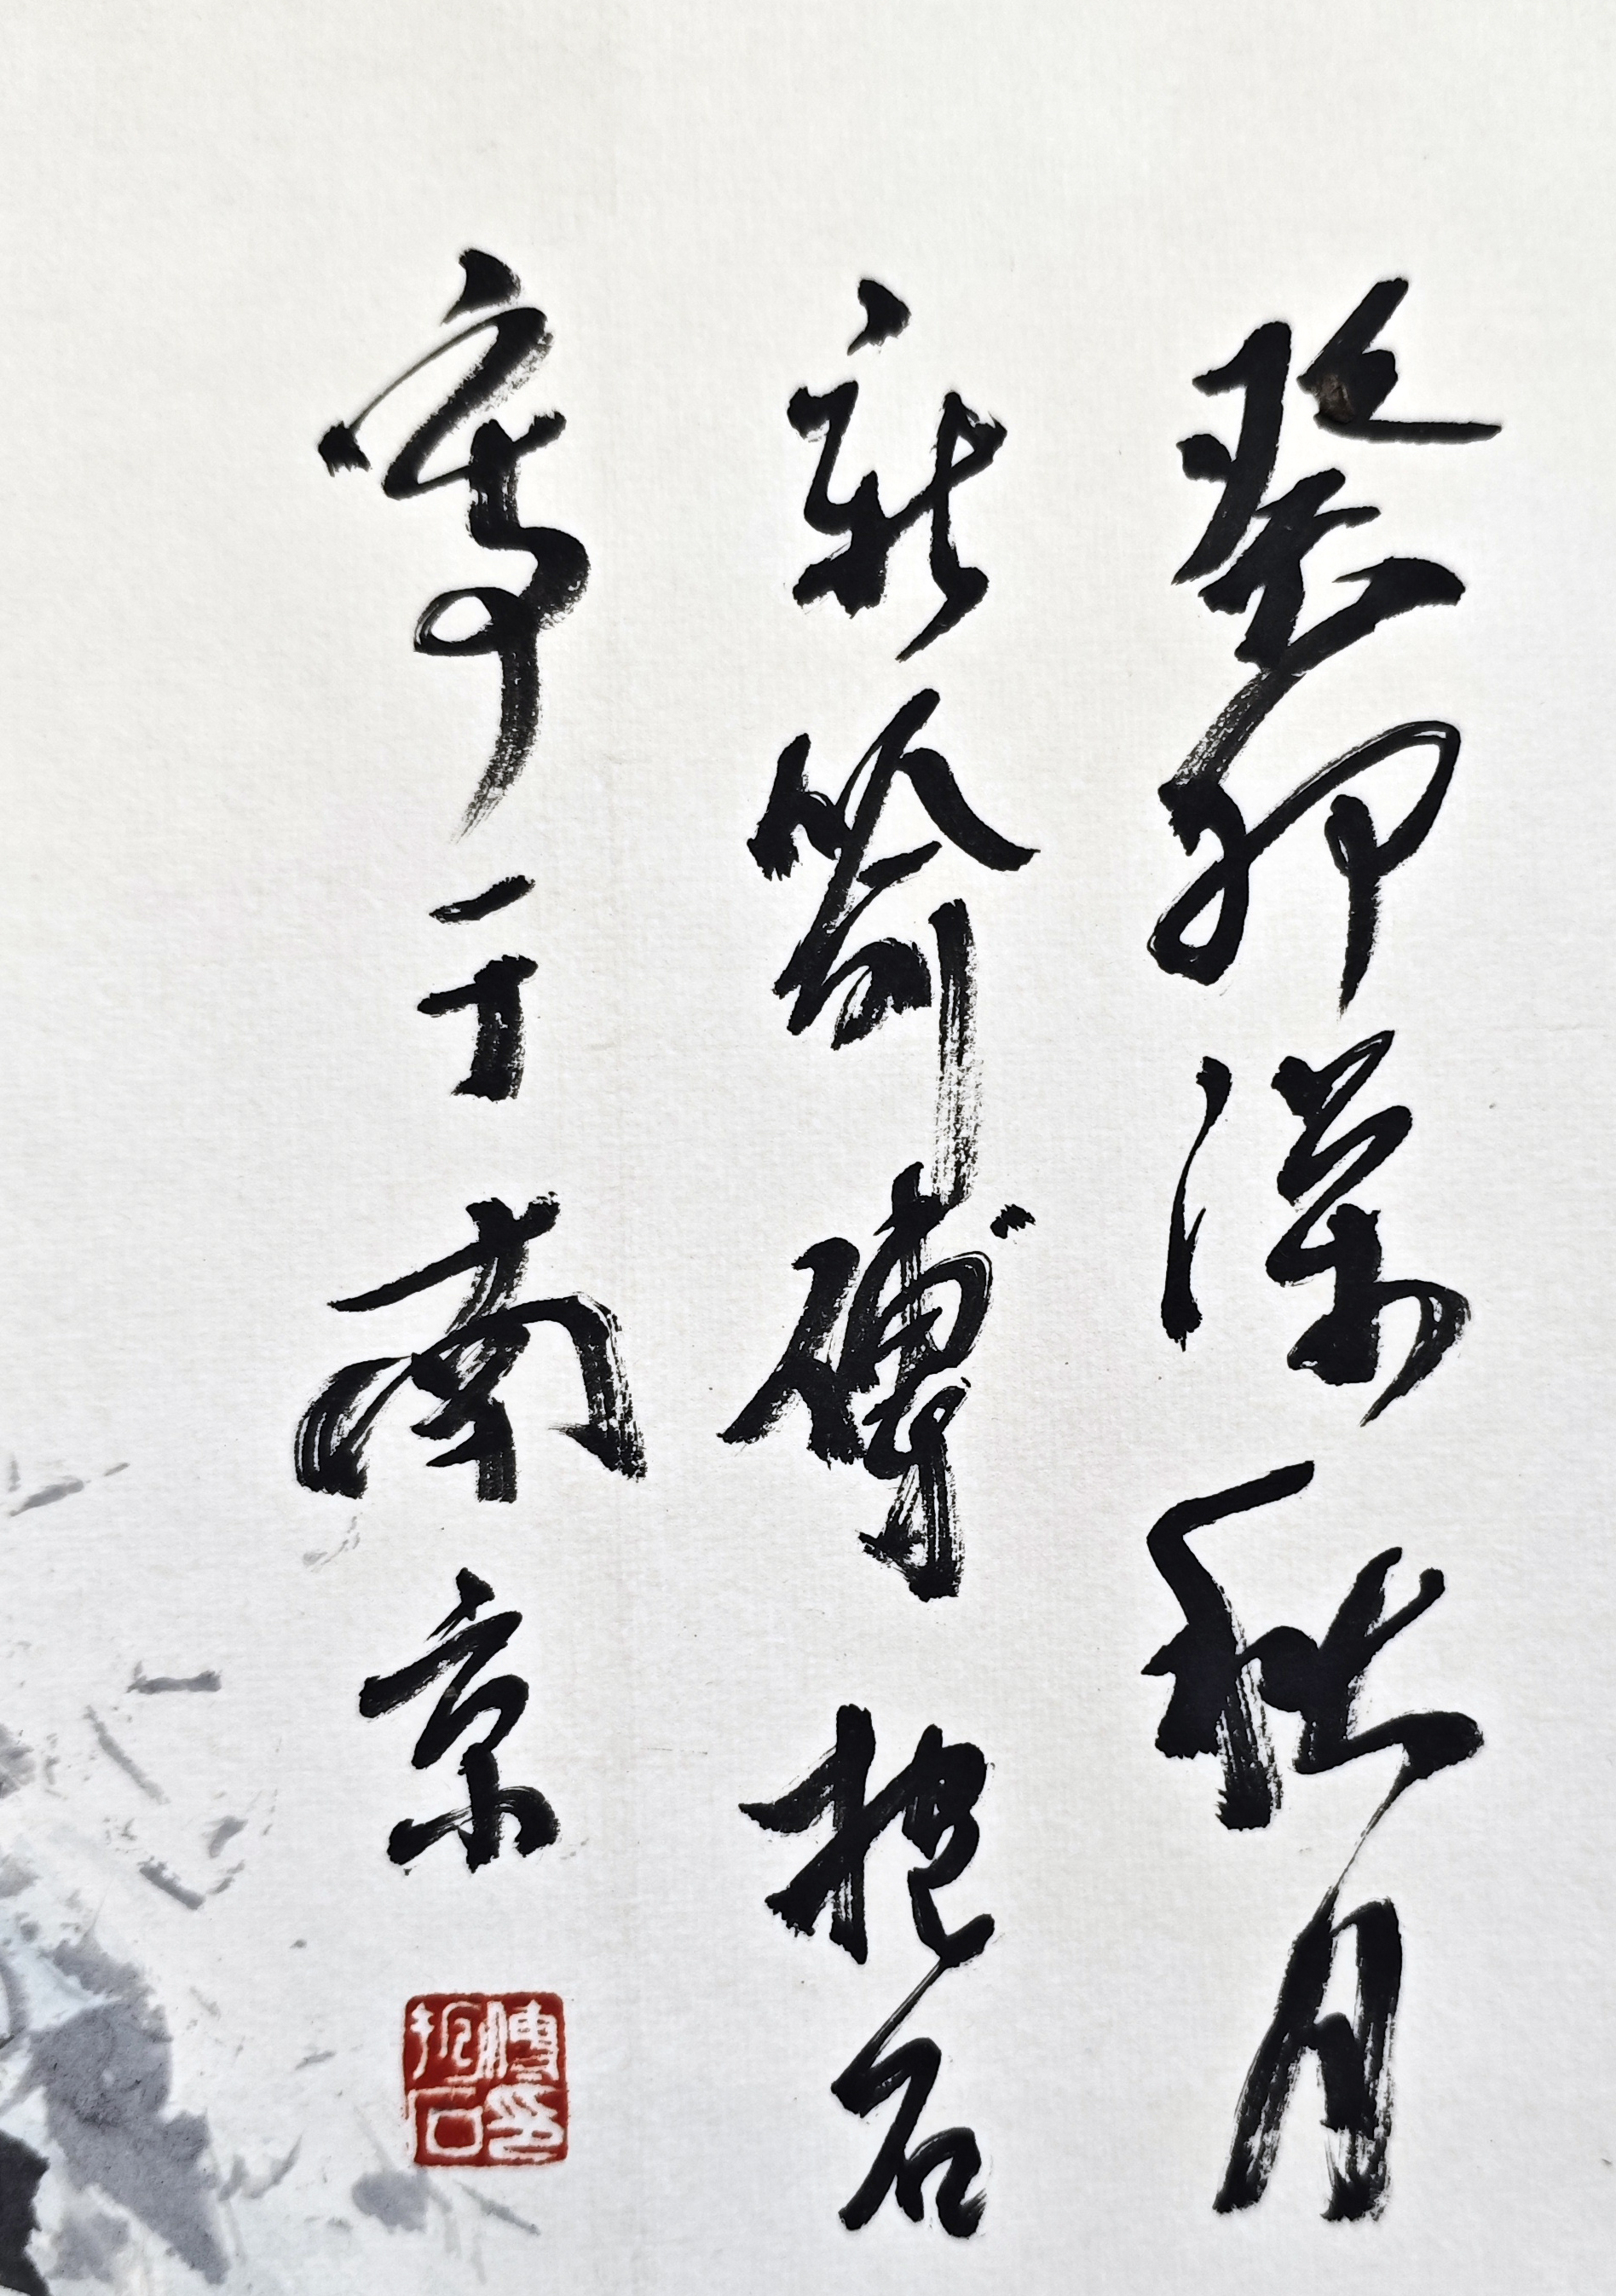 癸卯深秋月
新喻傅抱石
写于南京
傅抱石印